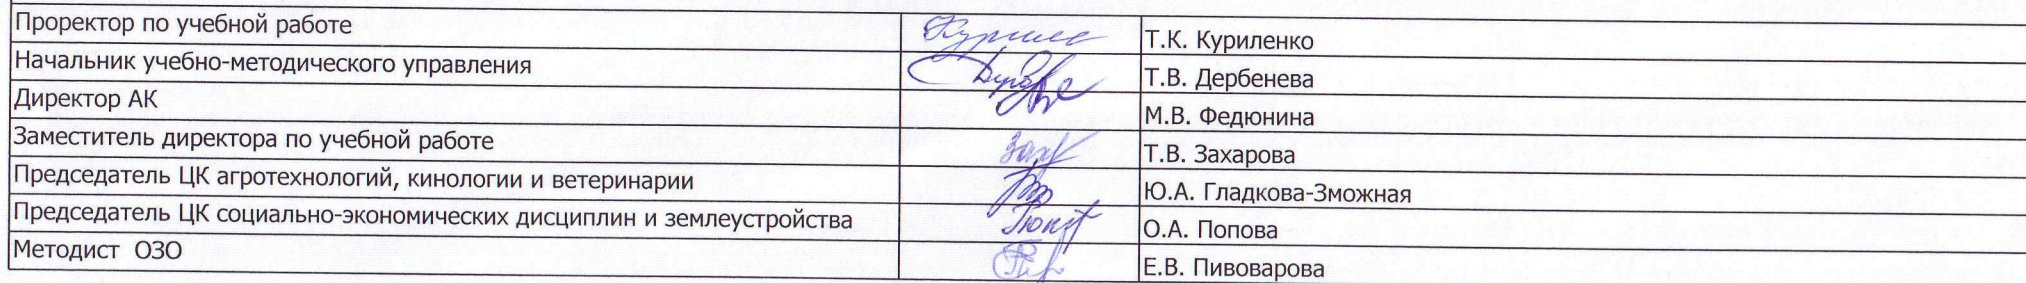 Проректор по учебной работе Т.К. Куриленко
Начальник учебно-методического управления Т.В. Дербенева
Директор АК М.В. Федюнина
Заместитель директора по учебной работе Т.В. Захарова
Председатель ЦК агротехнологий, кинологии и ветеринарии Ю.А. Гладкова-Зможная
Председатель ЦК социально-экономических дисциплин и землеустройства О.А. Попова
Методист ОЗО Е.В. Пивоварова